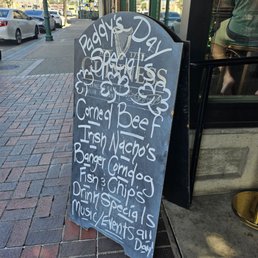 Paddy's Day
Specials
Corned Beef
Irish Nacho's
Banger Corndog
Fish & Chips
Drink Specials
Music/Events all
Day